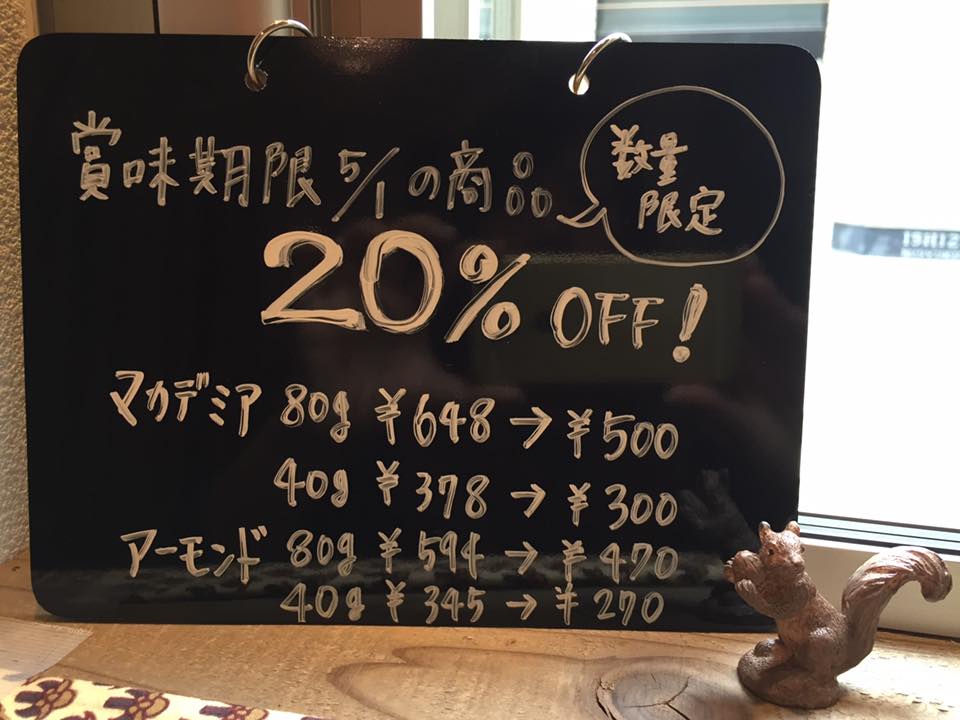 賞味期限5/1の商品
数量
限定
20% OFF!
マカデミア 80g ¥648→¥500
40g ¥378→¥300
アーモンド 80g ¥594→¥470
40g ¥345→¥270